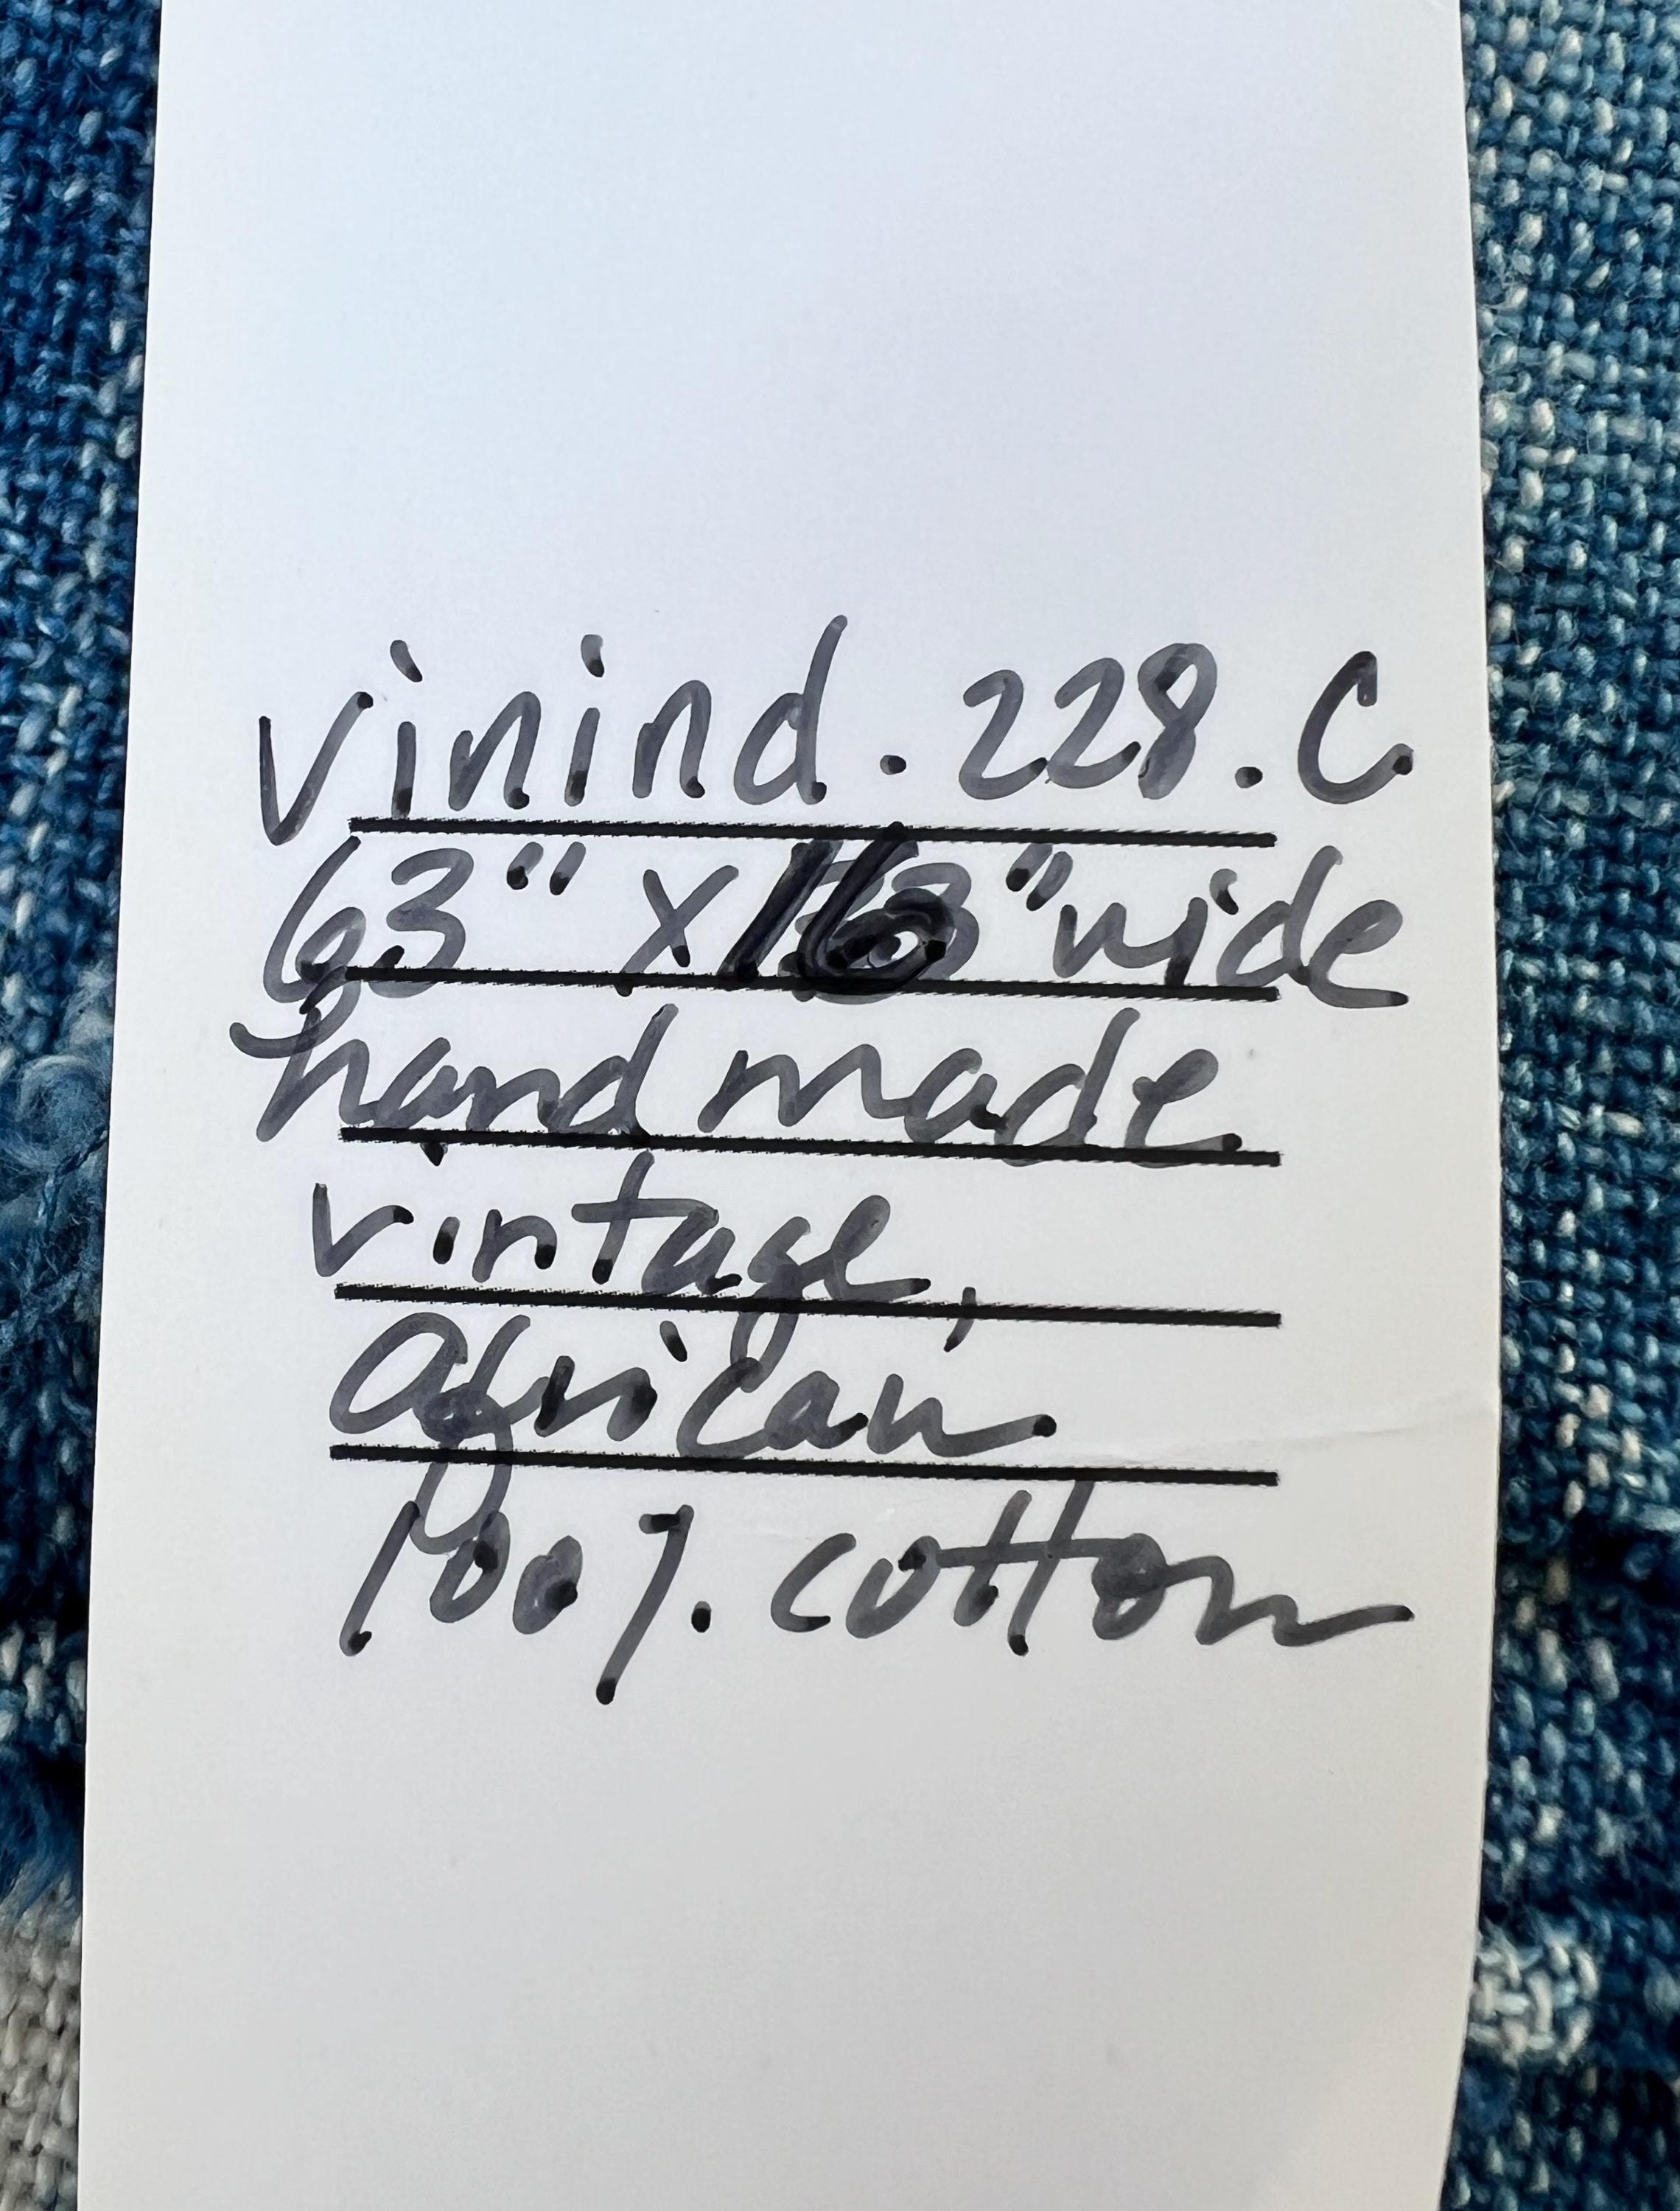 Vinind.228.C
63" x 16" wide
hand made
vintage,
African
100% cotton